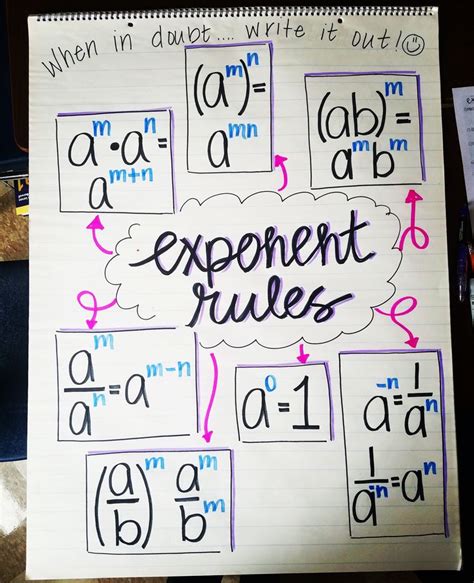 When in doubt.... write it out! ☺
a^m • a^n =
a^{m+n}
(a^m)^n =
a^{mn}
(ab)^m =
a^m b^m
exponent
rules
a^m / a^n = a^{m-n}
a^0 = 1
a^{-n} = 1 / a^n
1 / a^{-n} = a^n
(a / b)^m a^m / b^m